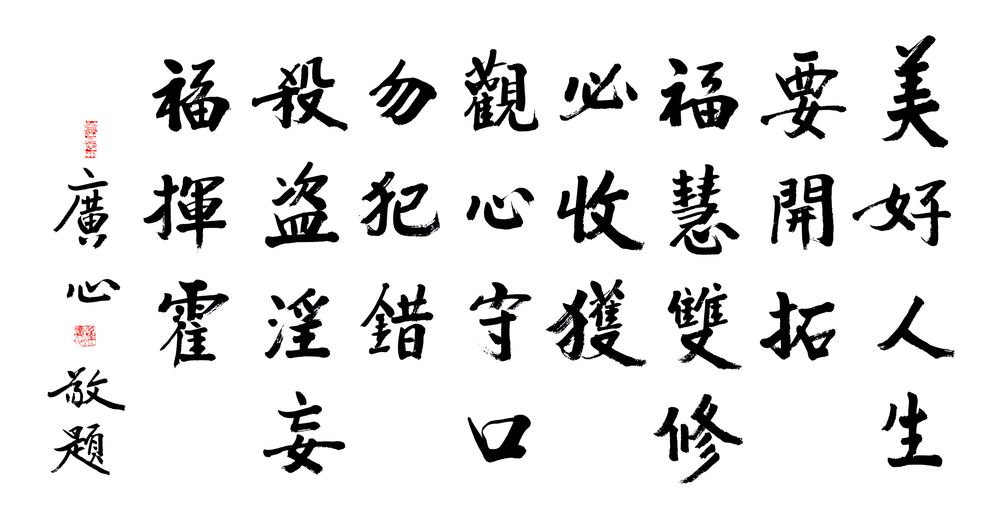 美好人生
要開拓
福慧雙修
必收獲
觀心守口
勿犯錯
殺盜淫妄
福揮霍
廣心敬題